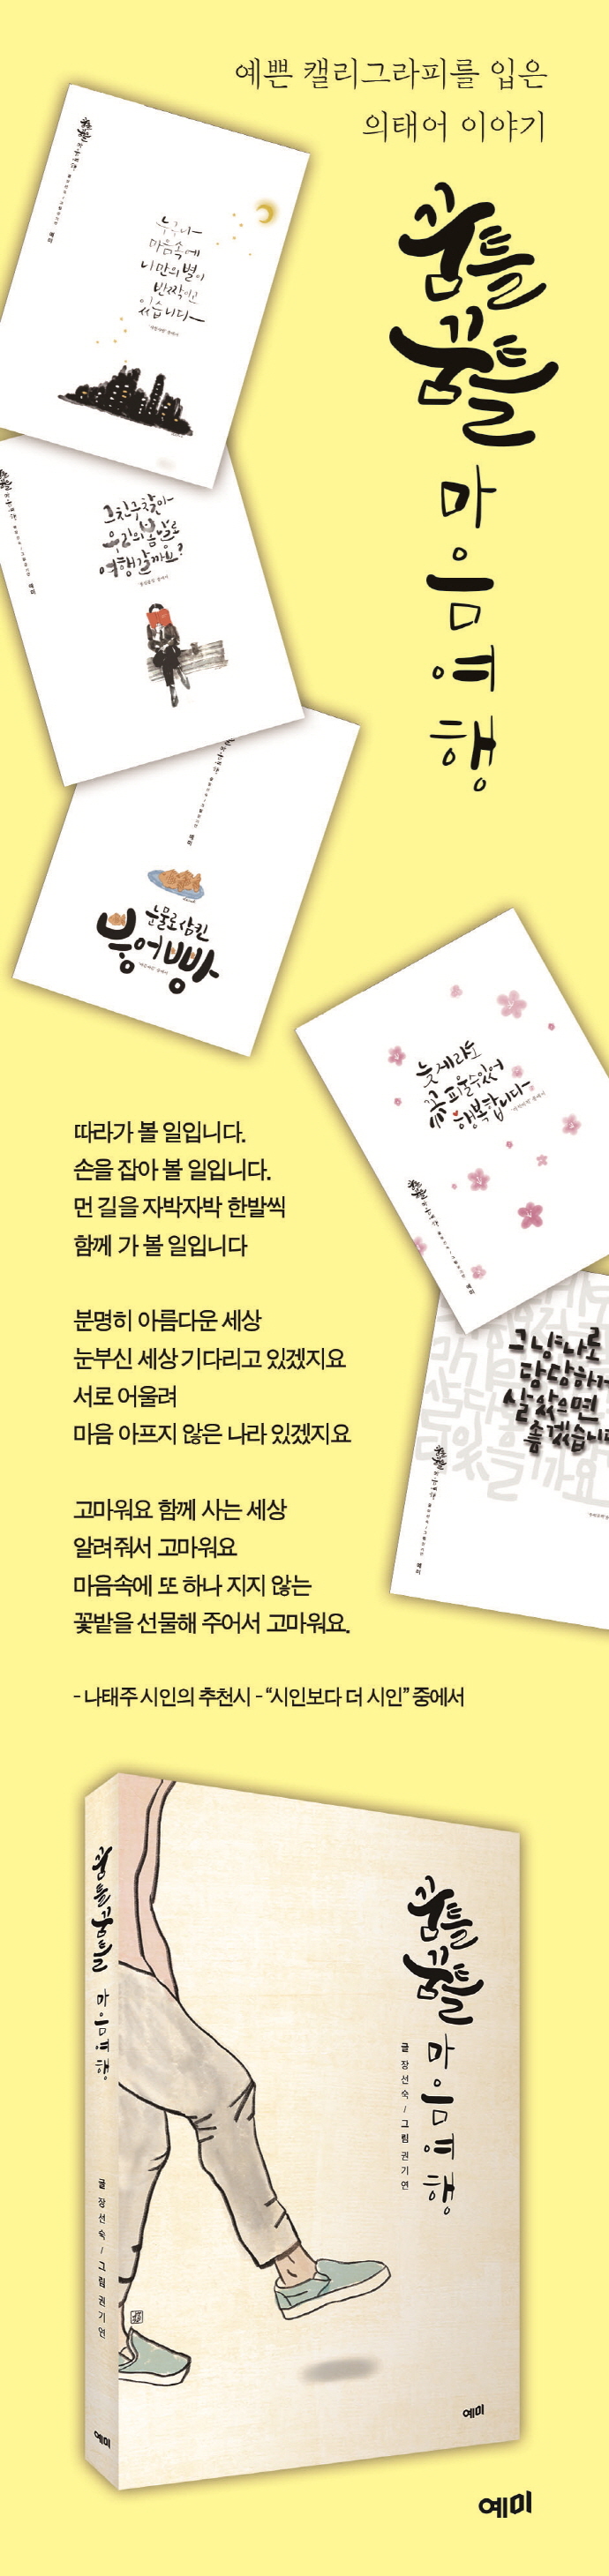 예쁜 캘리그라피를 입은
의태어 이야기
꿈틀
꿈틀
마음여행
누구나
마음속에
나만의 별이
반짝이고
있습니다
그 친구 찾아
우리의 봄날로
여행갈까요?
예미
눈물로 삼킨
붕어빵
늦게라도
꽃 피울 수 있어
행복합니다
예미
그냥 나로
당당하게
살았으면
좋겠습니다
예미
따라가 볼 일입니다.
손을 잡아 볼 일입니다.
먼 길을 자박자박 한발씩
함께 가 볼 일입니다
분명히 아름다운 세상
눈부신 세상 기다리고 있겠지요
서로 어울려
마음 아프지 않은 나라 있겠지요
고마워요 함께 사는 세상
알려줘서 고마워요
마음속에 또 하나 지지 않는
꽃밭을 선물해 주어서 고마워요.
- 나태주 시인의 추천시 - “시인보다 더 시인” 중에서
꿈틀꿈틀 마음여행
글 장선숙 / 그림 권기연
예미
꿈틀
꿈틀
마음여행
글 장선숙 / 그림 권기연
예미
예미